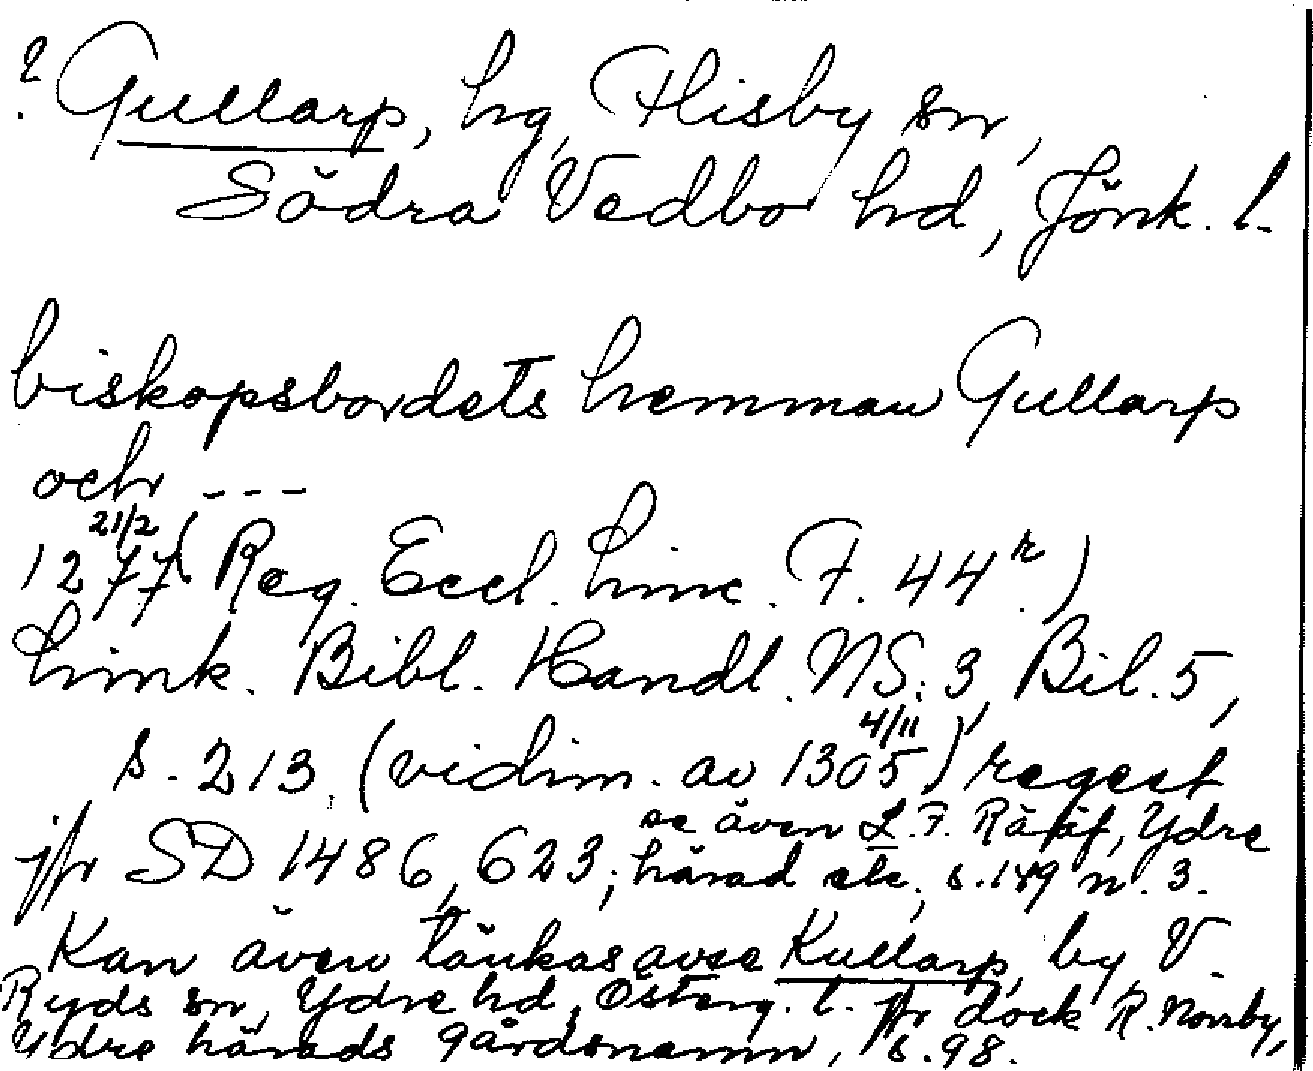 ? Gullarp, hg, Flisby sn,
Södra Vedbo hd, Jönk. l.
biskopsbordets hemman Gullarp
och ---
21/2
1277 (Reg. Eccl. Linc. F. 44r.)
Link. Bibl. Handl. NS: 3, Bil. 5,
4/11
s. 213, (vidim. av 1305) regest
jfr SD 1486, 623; se även L.F. Rääf, Ydre
härad etc, s. 149 n. 3.
Kan även tänkas avse Kullarp, by, V.
Ryds sn, Ydre hd, Österg. l. jfr dock R. Norrby,
Ydre härads gårdsnamn, s. 98.